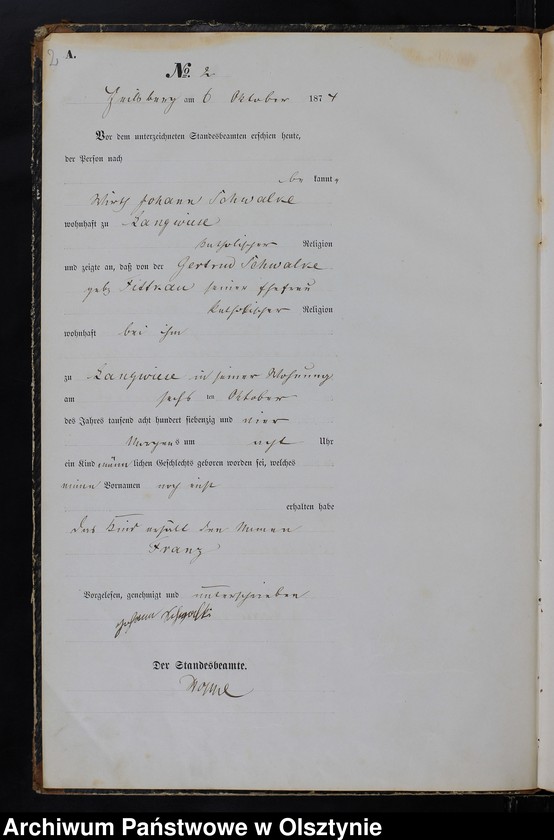 2
A.
No. 2
Heilsberg am 6 Oktober 1874
Vor dem unterzeichneten Standesbeamten erschien heute,
der Person nach
be kannt,
Wirth Johann Schwalke
wohnhaft zu Langwiese
katholischer Religion
und zeigte an, daß von der Gertrud Schwalke
geb. Dittkau seiner Ehefrau
katholischer Religion
wohnhaft bei ihm
zu Langwiese in seiner Wohnung
am sechs ten Oktober
des Jahres tausend acht hundert siebenzig und vier
Morgens um acht Uhr
ein Kind männlichen Geschlechts geboren worden sei, welches
einen Vornamen noch nicht
erhalten habe
Das Kind erhält den Namen
Franz
Vorgelesen, genehmigt und unterschrieben
Johann
Der Standesbeamte.
Archiwum Państwowe w Olsztynie